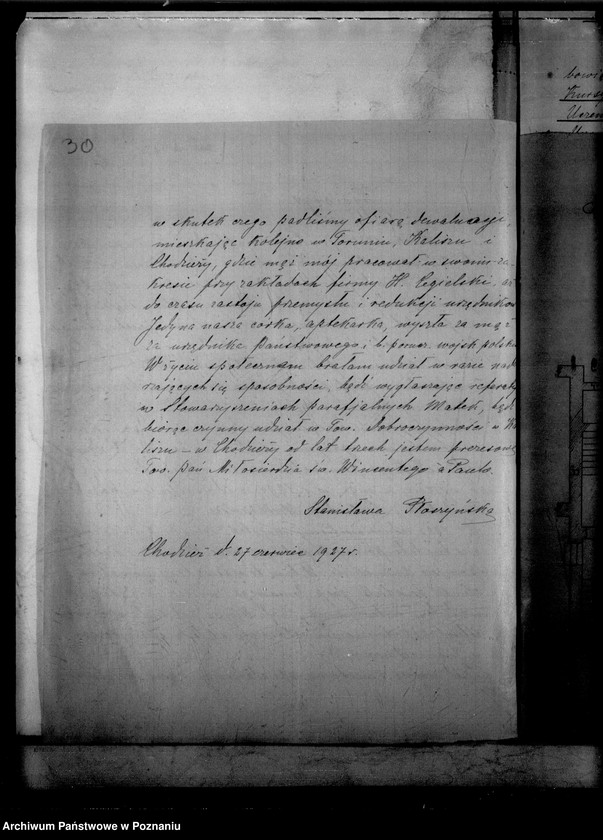 30
w skutek czego padliśmy ofiarą dewaluacji,
mieszkając kolejno w Toruniu, Kaliszu i
Chodzieży, gdzie mąż mój pracował w swoim za-
kresie przy zakładach firmy H. Cegielski, aż
do czasu zastoju przemysłu i redukcji urzędników
Jedyna nasza córka, aptekarka, wyszła za mąż
za urzędnika państwowego, i b. pomor. wojsk polsk
W życiu społecznem brałam udział w razie nad
rzających się sposobności, bądź wygłaszając referaty
w Stowarzyszeniach parafjalnych Matek, bądź
biorąc czynny udział w Tow. Dobroczynności w Ka
liszu – w Chodzieży od lat trzech jestem prezesową
Tow. pań Miłosierdzia św. Wincentego a Paulo.
Stanisława
Chodzież d. 27 czerwiec 1927 r.
bowią
Kurs
Uczen
Archiwum Państwowe w Poznaniu